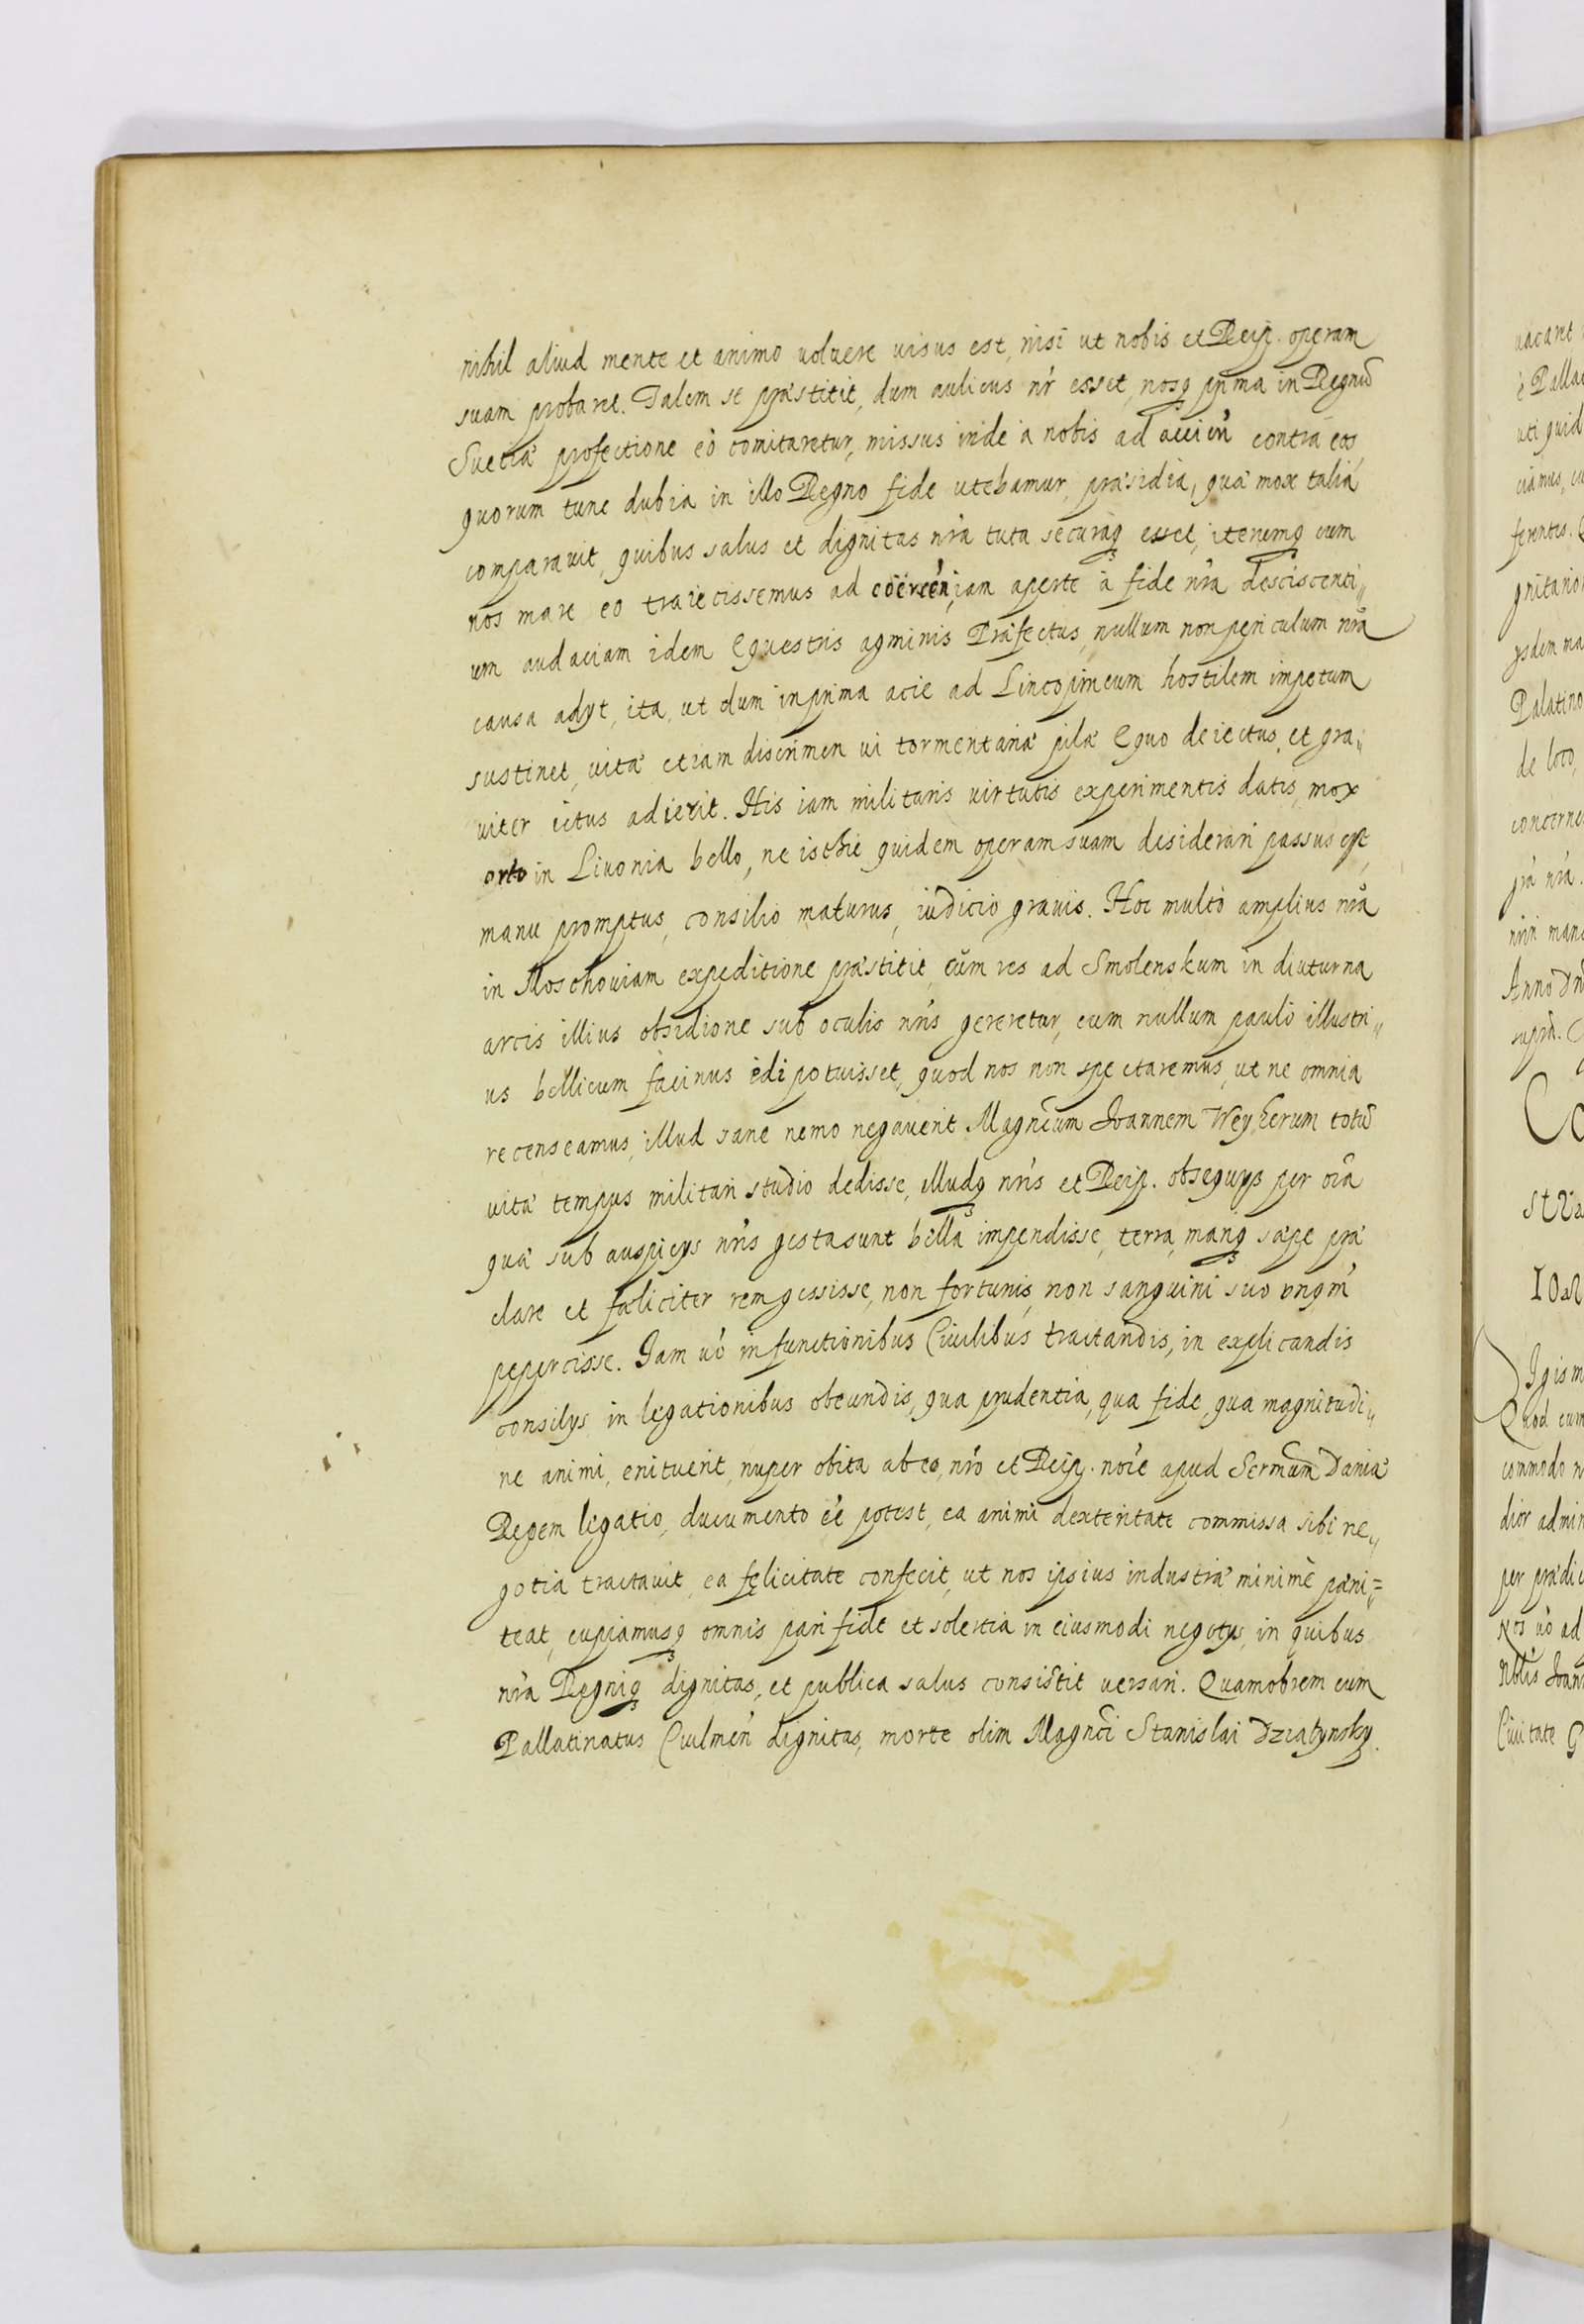 nihil aliud mente et animo voluere uisus est, nisi ut nobis et Reip. operam
suam probaret. Talem se præstitit, dum aulicus nr̃ esset, nosq́ prima in Regnũ
Sueciæ profectione eò comitaretur, missus inde à nobis ad acciẽn contra eos,
quorum tunc dubia in illo Regno fide utebamur, præsidia, quæ mox talia
comparauit, quibus salus et dignitas nr̃a tuta securaq́ esset, iterumq́ cum
nos mare eo traiecissemus ad coërcẽn, iam aperte à fide nr̃a desciscenti„
um audaciam idem Equestris agminis Præfectus, nullum non periculum nr̃a
causa adyt, ita, ut dum in prima acie ad Lincopincum hostilem impetum
sustinet, uitæ etiam discrimen ui tormentariæ pilæ Equo deiectus, et gra„
uiter ictus adierit. His iam militaris uirtutis experimentis datis, mox
orto in Liuonia bello, ne isthic quidem operam suam desiderari passus est,
manu promptus, consilio maturus, iudicio grauis. Hoc multò amplius nr̃a
in Moschouiam expeditione præstitit, cũm res ad Smolenskum in diuturna
arcis illius obsidione sub oculis nr̃is gereretur, cum nullum paulò illustri„
us bellicum facinus edi potuisset, quod nos non spectaremus, ut ne omnia
recenseamus, illud sane nemo negauerit Magnĩcum Ioannem Weyherum totũ
uitæ tempus militari studio dedisse, illudq́ nr̃is et Reip. obsequys per oĩa
quæ sub auspicys nr̃is gesta sunt bella impendisse, terra, mariq́ sæpe præ
clare et fœliciter rem gessisse, non fortunis, non sanguini suo vnqm̃
pepercisse. Iam uò in functionibus Ciuilibus tractandis, in explicandis
consilys in legationibus obeundis, qua prudentia, qua fide, qua magnitudi„
ne animi, enituerit, nuper obita ab eo, nr̃o et Reip. noĩe apud Sermũm Daniæ
Regem legatio, ducumento ẽe potest, ea animi dexteritate commissa sibi ne„
gotia tractauit, ea felicitate confecit, ut nos ipsius industriæ minimè pæni=
teat, cupiamusq́ omnis pari fide et solertia in eiusmodi negotys, in quibus
nr̃a Regniq́ dignitas, et publica salus consistit uersari. Quamobrem cum
Pallatinatus Culmeñ dignitas, morte olim Magnci Stanislai Dzialynsky.